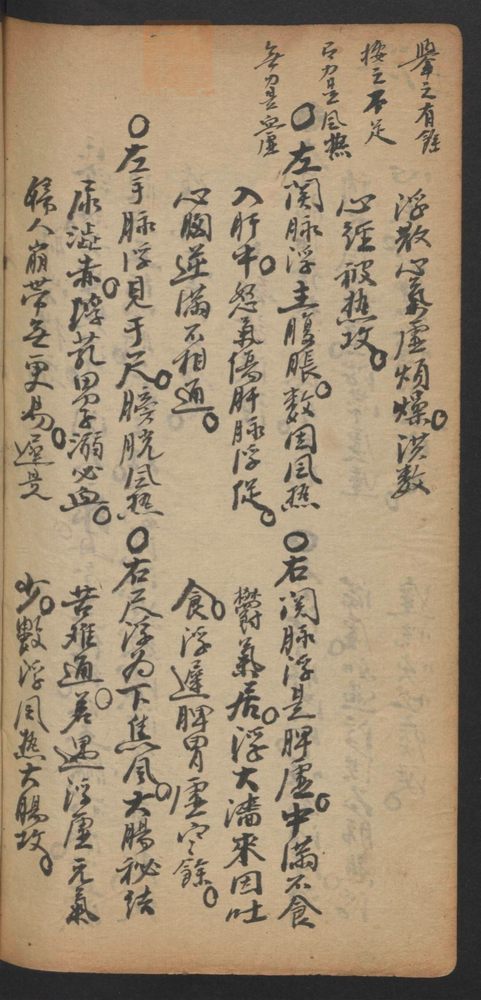 舉之有餘
按之不足
有力是風熱
無力是血虛
浮散心氣虛煩燥。洪數
心經被熱攻。
○左関脉浮主腹脹。数因風熱
入肝中。怒氣傷肝脉浮促。
心胸逆滿不相通。
○左手脉浮見于尺。膀胱風熱
尿澁赤。浮芤男子溺必血。
婦人崩帶無更易。遲是
○右関脉浮是脾虛。中滿不食
鬱氣居。浮大濇來因吐
食。浮遲脾胃虛
○右尺浮為下焦風。大腸秘结
苦难通。若遇浮虛元氣
少。數浮風熱大腸攻。